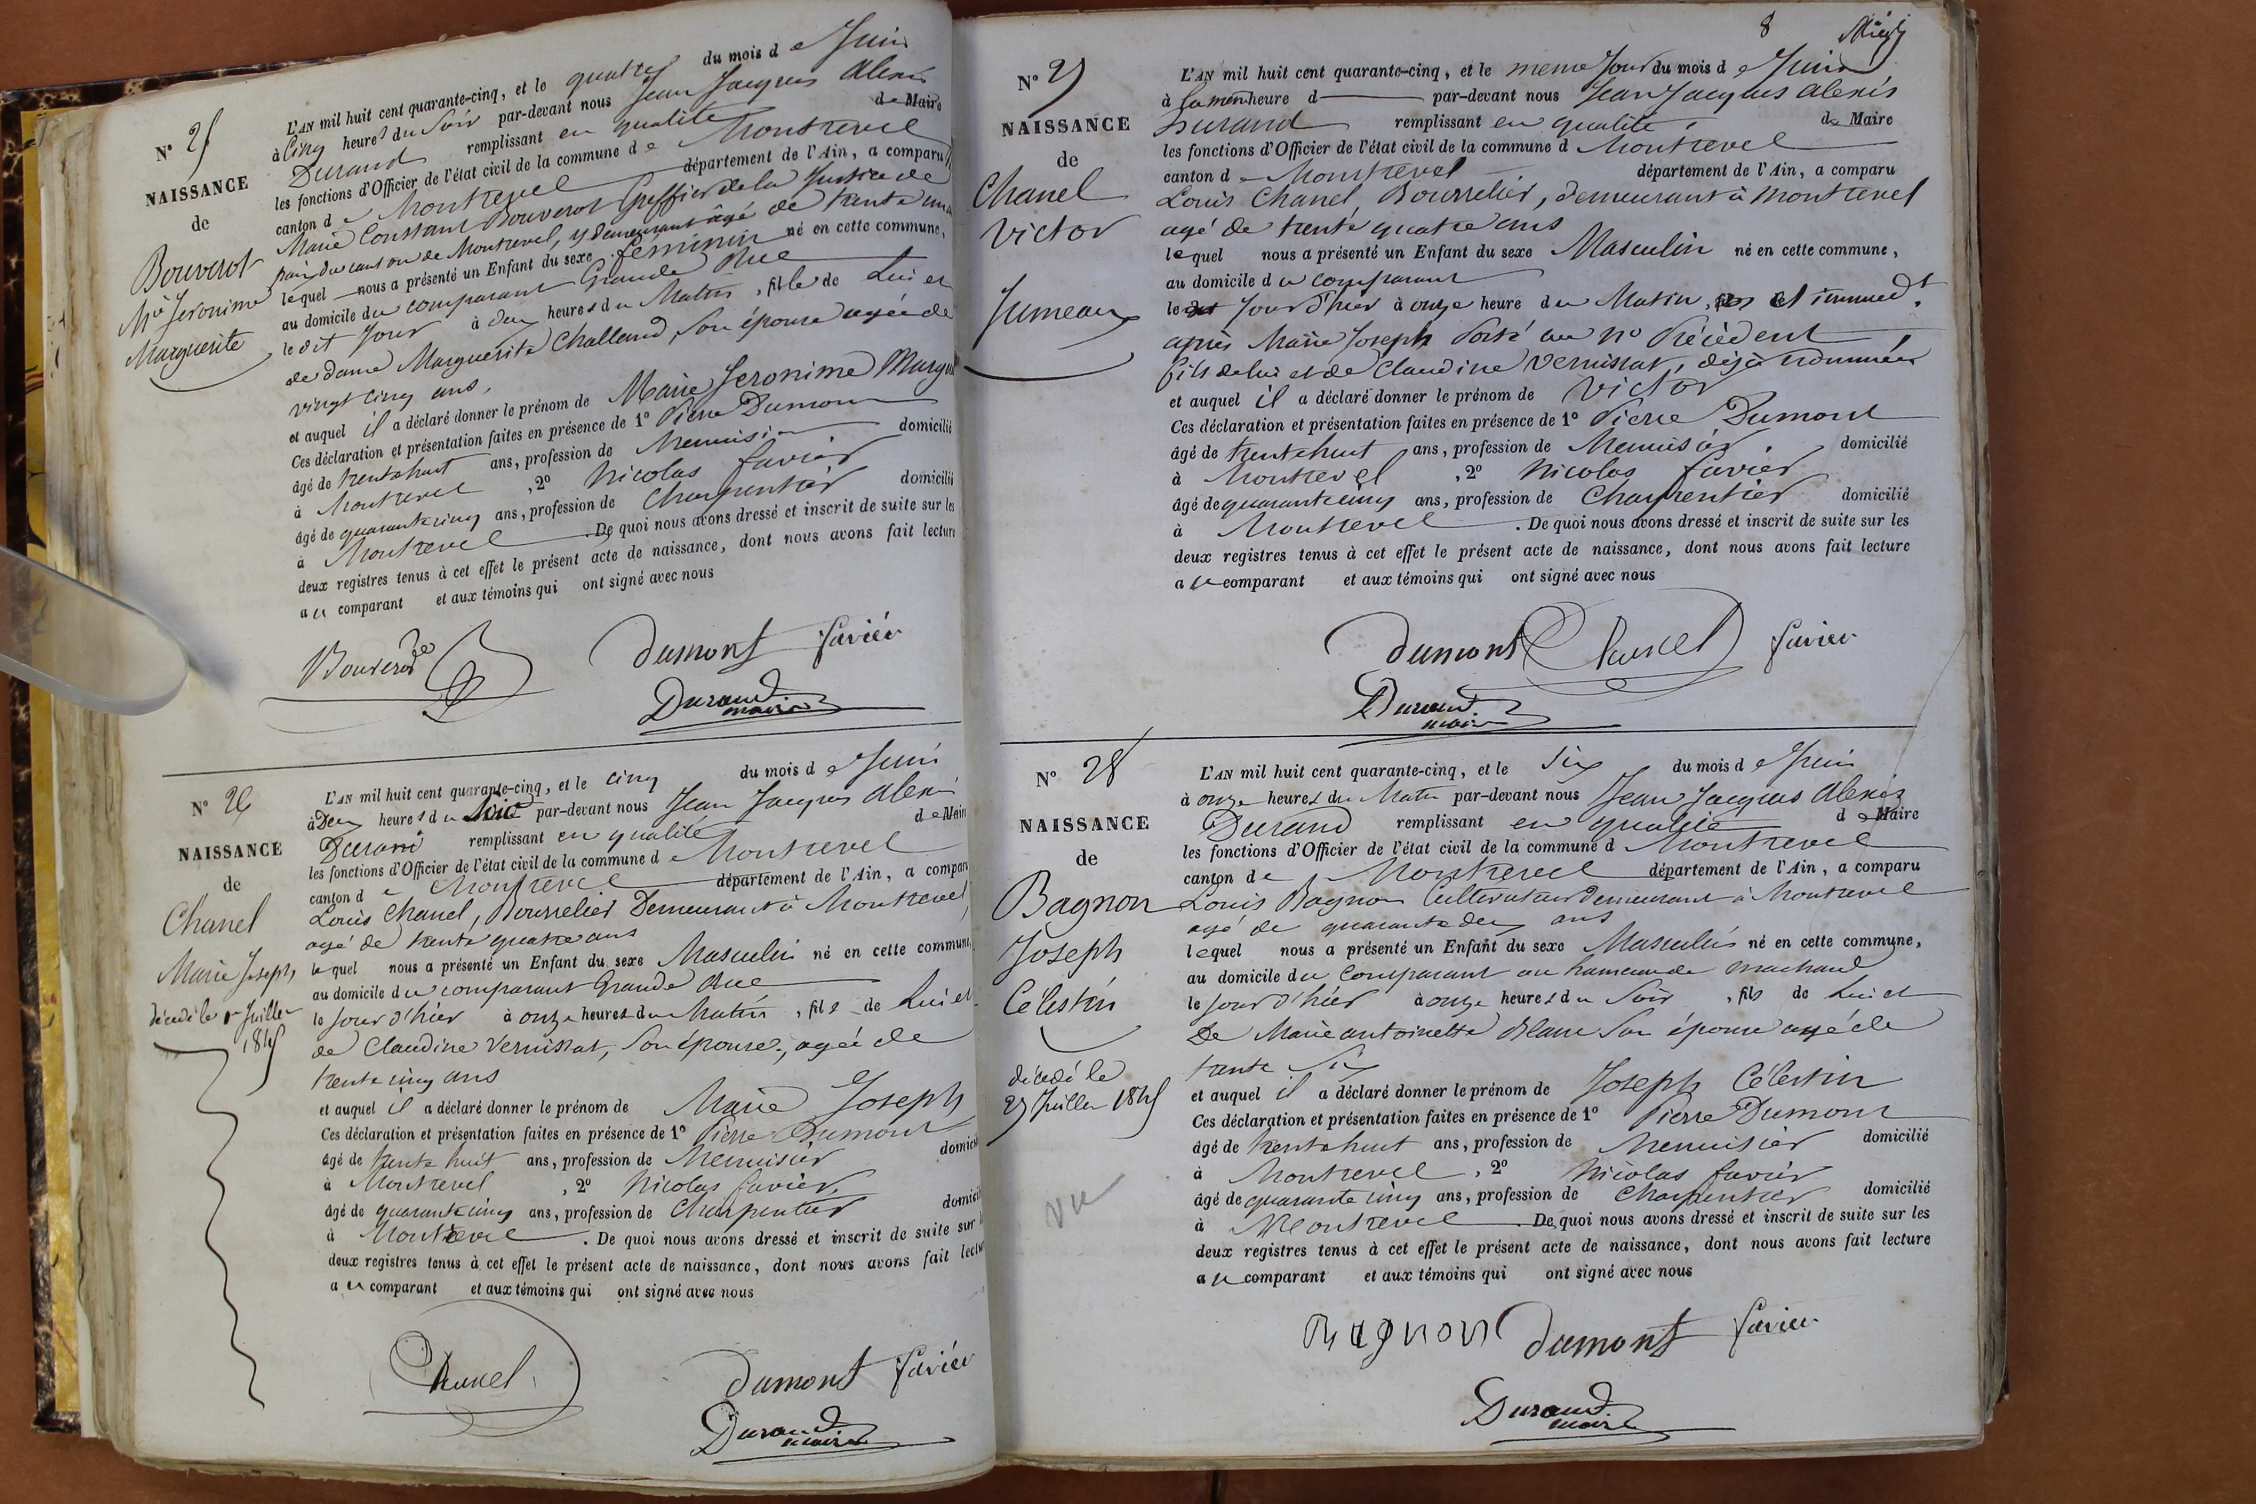 N° 25
NAISSANCE
de
Bouverot
Mie Jeronime
Marguerite
L'AN mil huit cent quarante-cinq, et le quatre du mois de Juin
à Cinq heures du Soir par-devant nous Jean Jacques Alexis
Durand remplissant en qualité de Maire
les fonctions d'Officier de l'état civil de la commune de Montrevel
canton de Montrevel département de l'Ain, a comparu
Marie Constant Bouverot Greffier de la Justice de
paix du canton de Montrevel, y demeurant âgé de trente un
lequel nous a présenté un Enfant du sexe féminin né en cette commune,
au domicile du comparant Grande Rue
le dit Jour à deux heures du Matin, fille de Lui et
de dame Marguerite Challand, son épouse agée de
vingt cinq ans.
et auquel il a déclaré donner le prénom de Marie Jeronime Margue
Ces déclaration et présentation faites en présence de 1° Pierre Dumont
âgé de trente huit ans, profession de Menuisier domicilié
à Montrevel, 2° Nicolas favier
âgé de quarante cinq ans, profession de Charpentier domicilié
à Montrevel. De quoi nous avons dressé et inscrit de suite sur les
deux registres tenus à cet effet le présent acte de naissance, dont nous avons fait lecture
au comparant et aux témoins qui ont signé avec nous
Bouverot dumont favier
Durand
maire
N° 26
NAISSANCE
de
Chanel
Marie Joseph
décédé le 1er Juillet
1845
L'AN mil huit cent quarante-cinq, et le cinq du mois de Juin
à Deux heures du Soir par-devant nous Jean Jacques Alexis
Durand remplissant en qualité de Maire
les fonctions d'Officier de l'état civil de la commune de Montrevel
canton de Montrevel département de l'Ain, a comparu
Louis Chanel, Bourrelier Demeurant à Montrevel,
agé de trente quatre ans
lequel nous a présenté un Enfant du sexe Masculin né en cette commune,
au domicile du comparant Grande Rue
le Jour d'hier à onze heures du Matin, fils de Lui et
de Claudine Vernissat, son épouse, agée de
trente cinq ans
et auquel il a déclaré donner le prénom de Marie Joseph
Ces déclaration et présentation faites en présence de 1° Pierre Dumont
âgé de trente huit ans, profession de Menuisier domicilié
à Montrevel, 2° Nicolas favier
âgé de quarante cinq ans, profession de Charpentier domicilié
à Montrevel. De quoi nous avons dressé et inscrit de suite sur les
deux registres tenus à cet effet le présent acte de naissance, dont nous avons fait lecture
au comparant et aux témoins qui ont signé avec nous
Chanel dumont favier
Durand
maire
8
N° 27
NAISSANCE
de
Chanel
Victor
Jumeaux
L'AN mil huit cent quarante-cinq, et le meme Jour du mois de Juin
à la mem heure d par-devant nous Jean Jacques Alexis
Durand remplissant en qualité de Maire
les fonctions d'Officier de l'état civil de la commune d Montrevel
canton de Montrevel département de l'Ain, a comparu
Louis Chanel, Bourrelier, demeurant à Montrevel
agé de trente quatre ans
lequel nous a présenté un Enfant du sexe Masculin né en cette commune,
au domicile du comparant
le Jour d'hier à onze heure du Matin, et immedt.
après Marie Joseph Porté au N° Précédent
fils de lui et de Claudine Vernissat, déjà nommée
et auquel il a déclaré donner le prénom de Victor
Ces déclaration et présentation faites en présence de 1° Pierre Dumont
âgé de trente huit ans, profession de Menuisier domicilié
à Montrevel, 2° Nicolas favier
âgé de quarante cinq ans, profession de Charpentier domicilié
à Montrevel. De quoi nous avons dressé et inscrit de suite sur les
deux registres tenus à cet effet le présent acte de naissance, dont nous avons fait lecture
au comparant et aux témoins qui ont signé avec nous
dumont Chanel favier
Durand
maire
N° 28
NAISSANCE
de
Bagnon
Joseph
Célestin
décédé le
27 Juillet 1845
vu
L'AN mil huit cent quarante-cinq, et le Six du mois de Juin
à onze heures du Matin par-devant nous Jean Jacques Alexis
Durand remplissant en qualité de Maire
les fonctions d'Officier de l'état civil de la commune d Montrevel
canton de Montrevel département de l'Ain, a comparu
Louis Bagnon Cultivateur Demeurant à Montrevel
agé de quarante deux ans
lequel nous a présenté un Enfant du sexe Masculin né en cette commune,
au domicile du comparant au hameau de machard
le Jour d'hier à onze heures du Soir, fils de Lui et
De Marie antoinette Blanc Son épouse agée de
trente Six
et auquel il a déclaré donner le prénom de Joseph Célestin
Ces déclaration et présentation faites en présence de 1° Pierre Dumont
âgé de trente huit ans, profession de Menuisier domicilié
à Montrevel, 2° Nicolas favier
âgé de quarante cinq ans, profession de Charpentier domicilié
à Montrevel. De quoi nous avons dressé et inscrit de suite sur les
deux registres tenus à cet effet le présent acte de naissance, dont nous avons fait lecture
au comparant et aux témoins qui ont signé avec nous
Bagnon dumont favier
Durand
maire